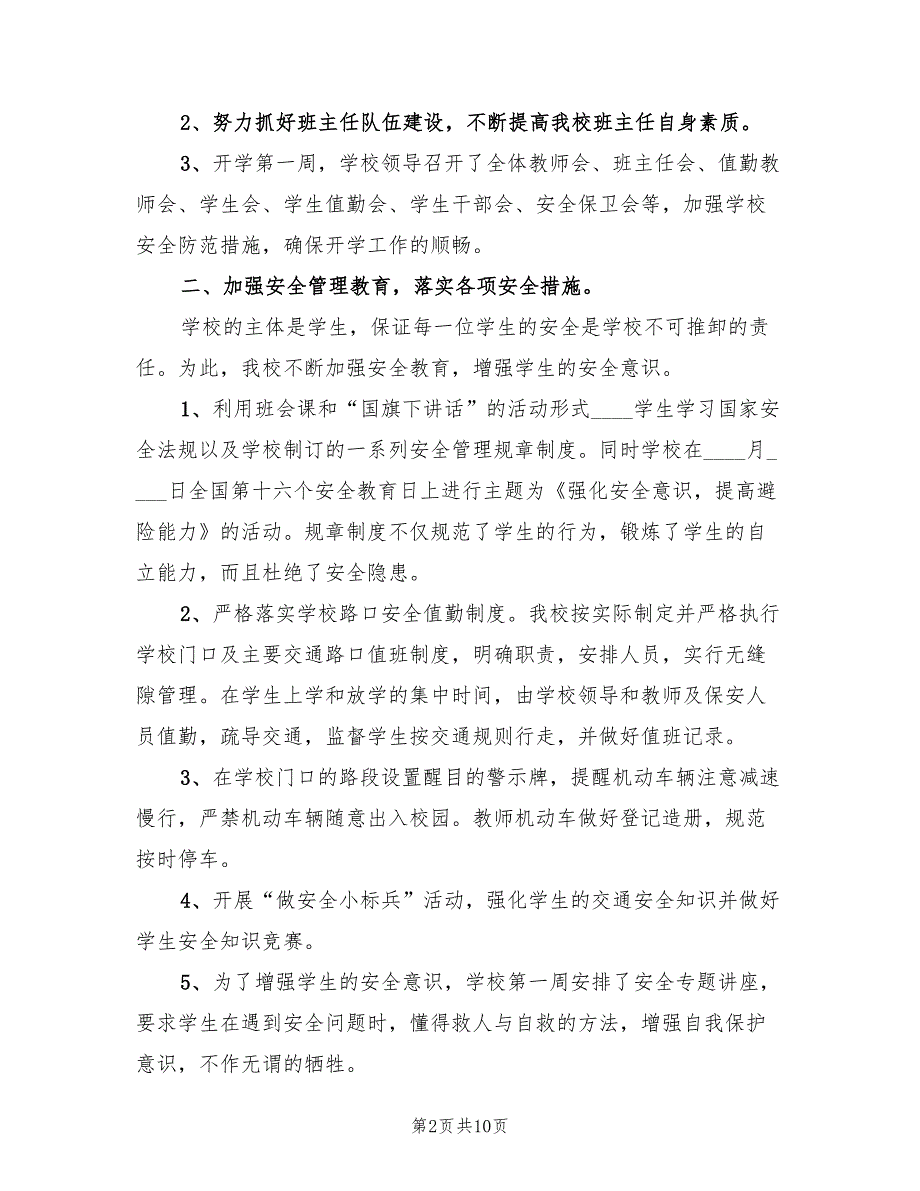 2、努力抓好班主任队伍建设，不断提高我校班主任自身素质。
3、开学第一周，学校领导召开了全体教师会、班主任会、值勤教
师会、学生会、学生值勤会、学生干部会、安全保卫会等，加强学校
安全防范措施，确保开学工作的顺畅。
二、加强安全管理教育，落实各项安全措施。
学校的主体是学生，保证每一位学生的安全是学校不可推卸的责
任。为此，我校不断加强安全教育，增强学生的安全意识。
1、利用班会课和“国旗下讲话”的活动形式____学生学习国家安
全法规以及学校制订的一系列安全管理规章制度。同时学校在____月_
___日全国第十六个安全教育日上进行主题为《强化安全意识，提高避
险能力》的活动。规章制度不仅规范了学生的行为，锻炼了学生的自
立能力，而且杜绝了安全隐患。
2、严格落实学校路口安全值勤制度。我校按实际制定并严格执行
学校门口及主要交通路口值班制度，明确职责，安排人员，实行无缝
隙管理。在学生上学和放学的集中时间，由学校领导和教师及保安人
员值勤，疏导交通，监督学生按交通规则行走，并做好值班记录。
3、在学校门口的路段设置醒目的警示牌，提醒机动车辆注意减速
慢行，严禁机动车辆随意出入校园。教师机动车做好登记造册，规范
按时停车。
4、开展“做安全小标兵”活动，强化学生的交通安全知识并做好
学生安全知识竞赛。
5、为了增强学生的安全意识，学校第一周安排了安全专题讲座，
要求学生在遇到安全问题时，懂得救人与自救的方法，增强自我保护
意识，不作无谓的牺牲。
第2页共10页